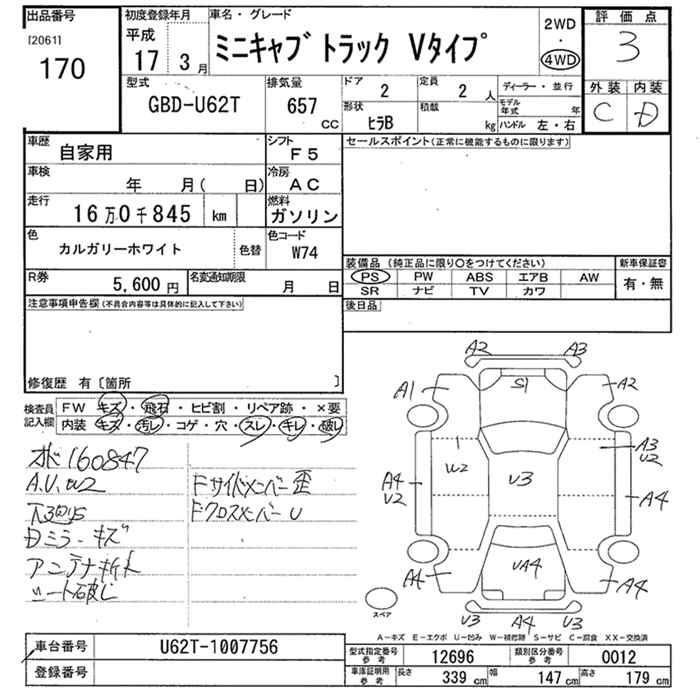 出品番号
[2061]
170
初度登録年月
平成
17 3月
車名・グレード
ミニキャブ トラック Vタイプ
2WD
・
4WD
評価点
3
外装 内装
C D
型式
GBD-U62T
排気量
657
CC
ドア
2
形状
ヒラB
定員
2 人
積載
kg
ディーラー・並行
モデル年式 年
ハンドル 左・右
車歴
自家用
シフト
F5
車検
年 月( 日)
冷房
AC
走行
16万0千845 km
燃料
ガソリン
色
カルガリーホワイト
色替
色コード
W74
R券
5,600 円
名変通知期限
月 日
セールスポイント(正常に機能するものに限ります)
装備品(純正品に限り○をつけてください)
PS PW ABS エアB AW
SR ナビ TV カワ
新車保証書
有・無
後日品
注意事項申告欄(不具合内容等は具体的に記入して下さい)
修復歴 有〔箇所 〕
検査員記入欄
FW キズ・飛石・ヒビ割・リペア跡・×要
内装 キズ・汚レ・コゲ・穴・スレ・キレ・破レ
160847
A.U. W2
Dミラーキズ
アンテナ
シート破レ
Fサイドメンバー歪
FクロスメンバーU
A2 A3
A1 S1 A2
W2 V3 A3 V2
A4 V2 A4
A4 VA4 A4
V3 A4 V3
スペア
A-キズ E-エクボ U-凹み W-補修跡 S-サビ C-腐食 XX-交換済
車台番号
U62T-1007756
登録番号
型式指定番号 参考
12696
類別区分番号 参考
0012
車庫証明用 参考
長さ 339 cm 幅 147 cm 高さ 179 cm